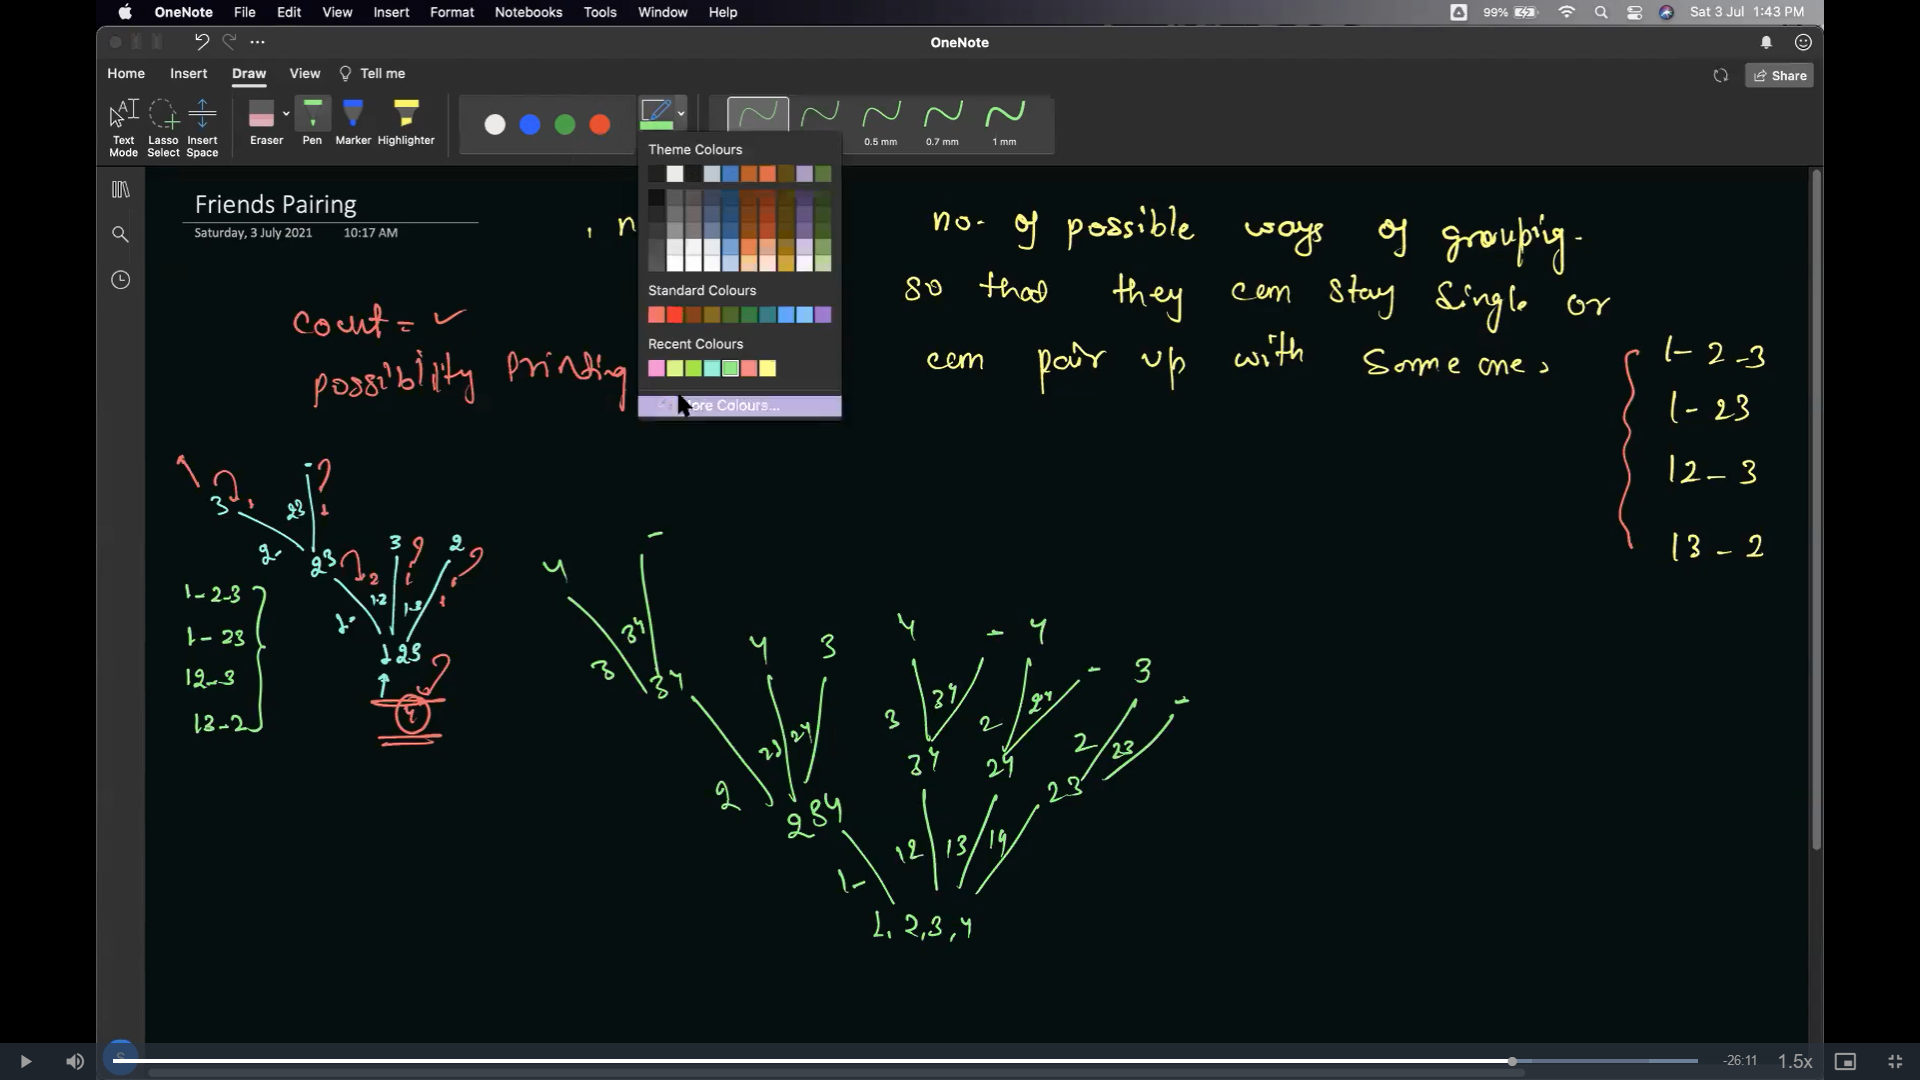 OneNote File Edit View Insert Format Notebooks Tools Window Help 99% Sat 3 Jul 1:43 PM
OneNote
Home Insert Draw View Tell me Share
Text Mode Lasso Select Insert Space Eraser Pen Marker Highlighter 0.5 mm 0.7 mm 1 mm
Theme Colours
Standard Colours
Recent Colours
ore Colours...
Friends Pairing
Saturday, 3 July 2021 10:17 AM
n
no. of possible ways of grouping.
so that they can stay single or
can pair up with someone.
count = ✓
possibility printing
1- 2 -3
1- 23
12 - 3
13 - 2
3 23
2- 23 3 2
1- 12 1-3
1 23
4
1-2-3
1-23
12-3
13-2
4 -
3 34
34
4 3
2 23 24
234
4 - 4 - 3 -
3 34 2 24 2 23
34 24 23
1- 12 13 14
1, 2, 3, 4
-26:11 1.5x